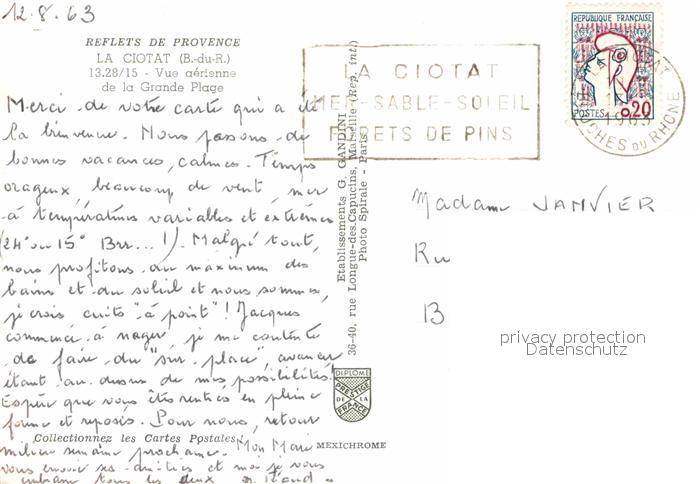 12.8.63
REFLETS DE PROVENCE
LA CIOTAT (B.-du-R.)
13.28/15 - Vue aérienne
de la Grande Plage
Merci de votre carte qui a été
la bienvenue. Nous passons de
bonnes vacances, calmes. Temps
orageux, beaucoup de vent, mer
à températures variables et extrêmes
(24° ou 15° Brr...!). Malgré tout,
nous profitons au maximum des
bains et du soleil et nous sommes,
je crois cuits "à point"! Jacques
commence à nager, je me contente
de faire du "sur place", avancer
étant au dessus de mes possibilités!
Espère que vous êtes rentrés en pleine
forme et reposés. Pour nous, retour
milieu semaine prochaine. Mon Mari
vous envoie ses amitiés et moi je vous
embrasse tous les deux
Collectionnez les Cartes Postales
MEXICHROME
Etablissements G. GANDINI
36-40, rue Longue-des-Capucins, Marseille (Rep. int.)
Photo Spirale - Paris
DIPLOME
PRESTIGE
DE LA
FRANCE
LA CIOTAT
MER-SABLE-SOLEIL
FORETS DE PINS
REPUBLIQUE FRANÇAISE
POSTES
0,20
LA CIOTAT
1963
BOUCHES DU RHONE
Madame JANVIER
Ru
B
privacy protection
Datenschutz